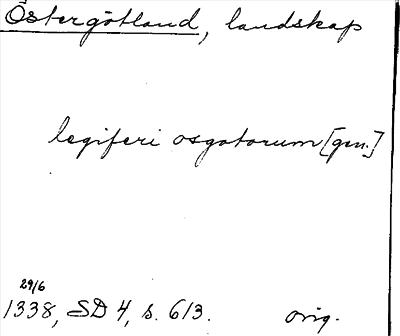 Östergötland, landskap
legiferi osgotorum [gen.]
29/6
1338, SD 4, s. 613. orig.